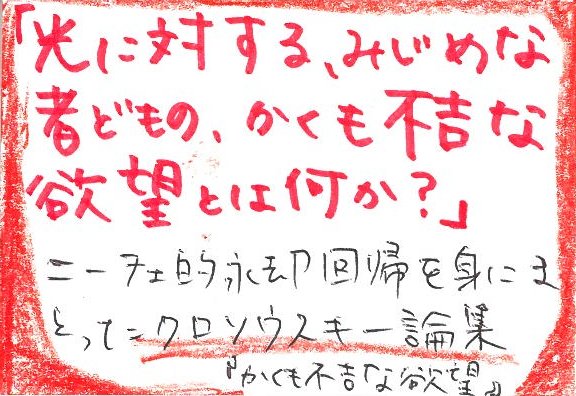 「光に対する、みじめな
者どもの、かくも不吉な
欲望とは何か?」
ニーチェ的永却回帰を身にま
とった クロソウスキー論集
『かくも不吉な欲望』